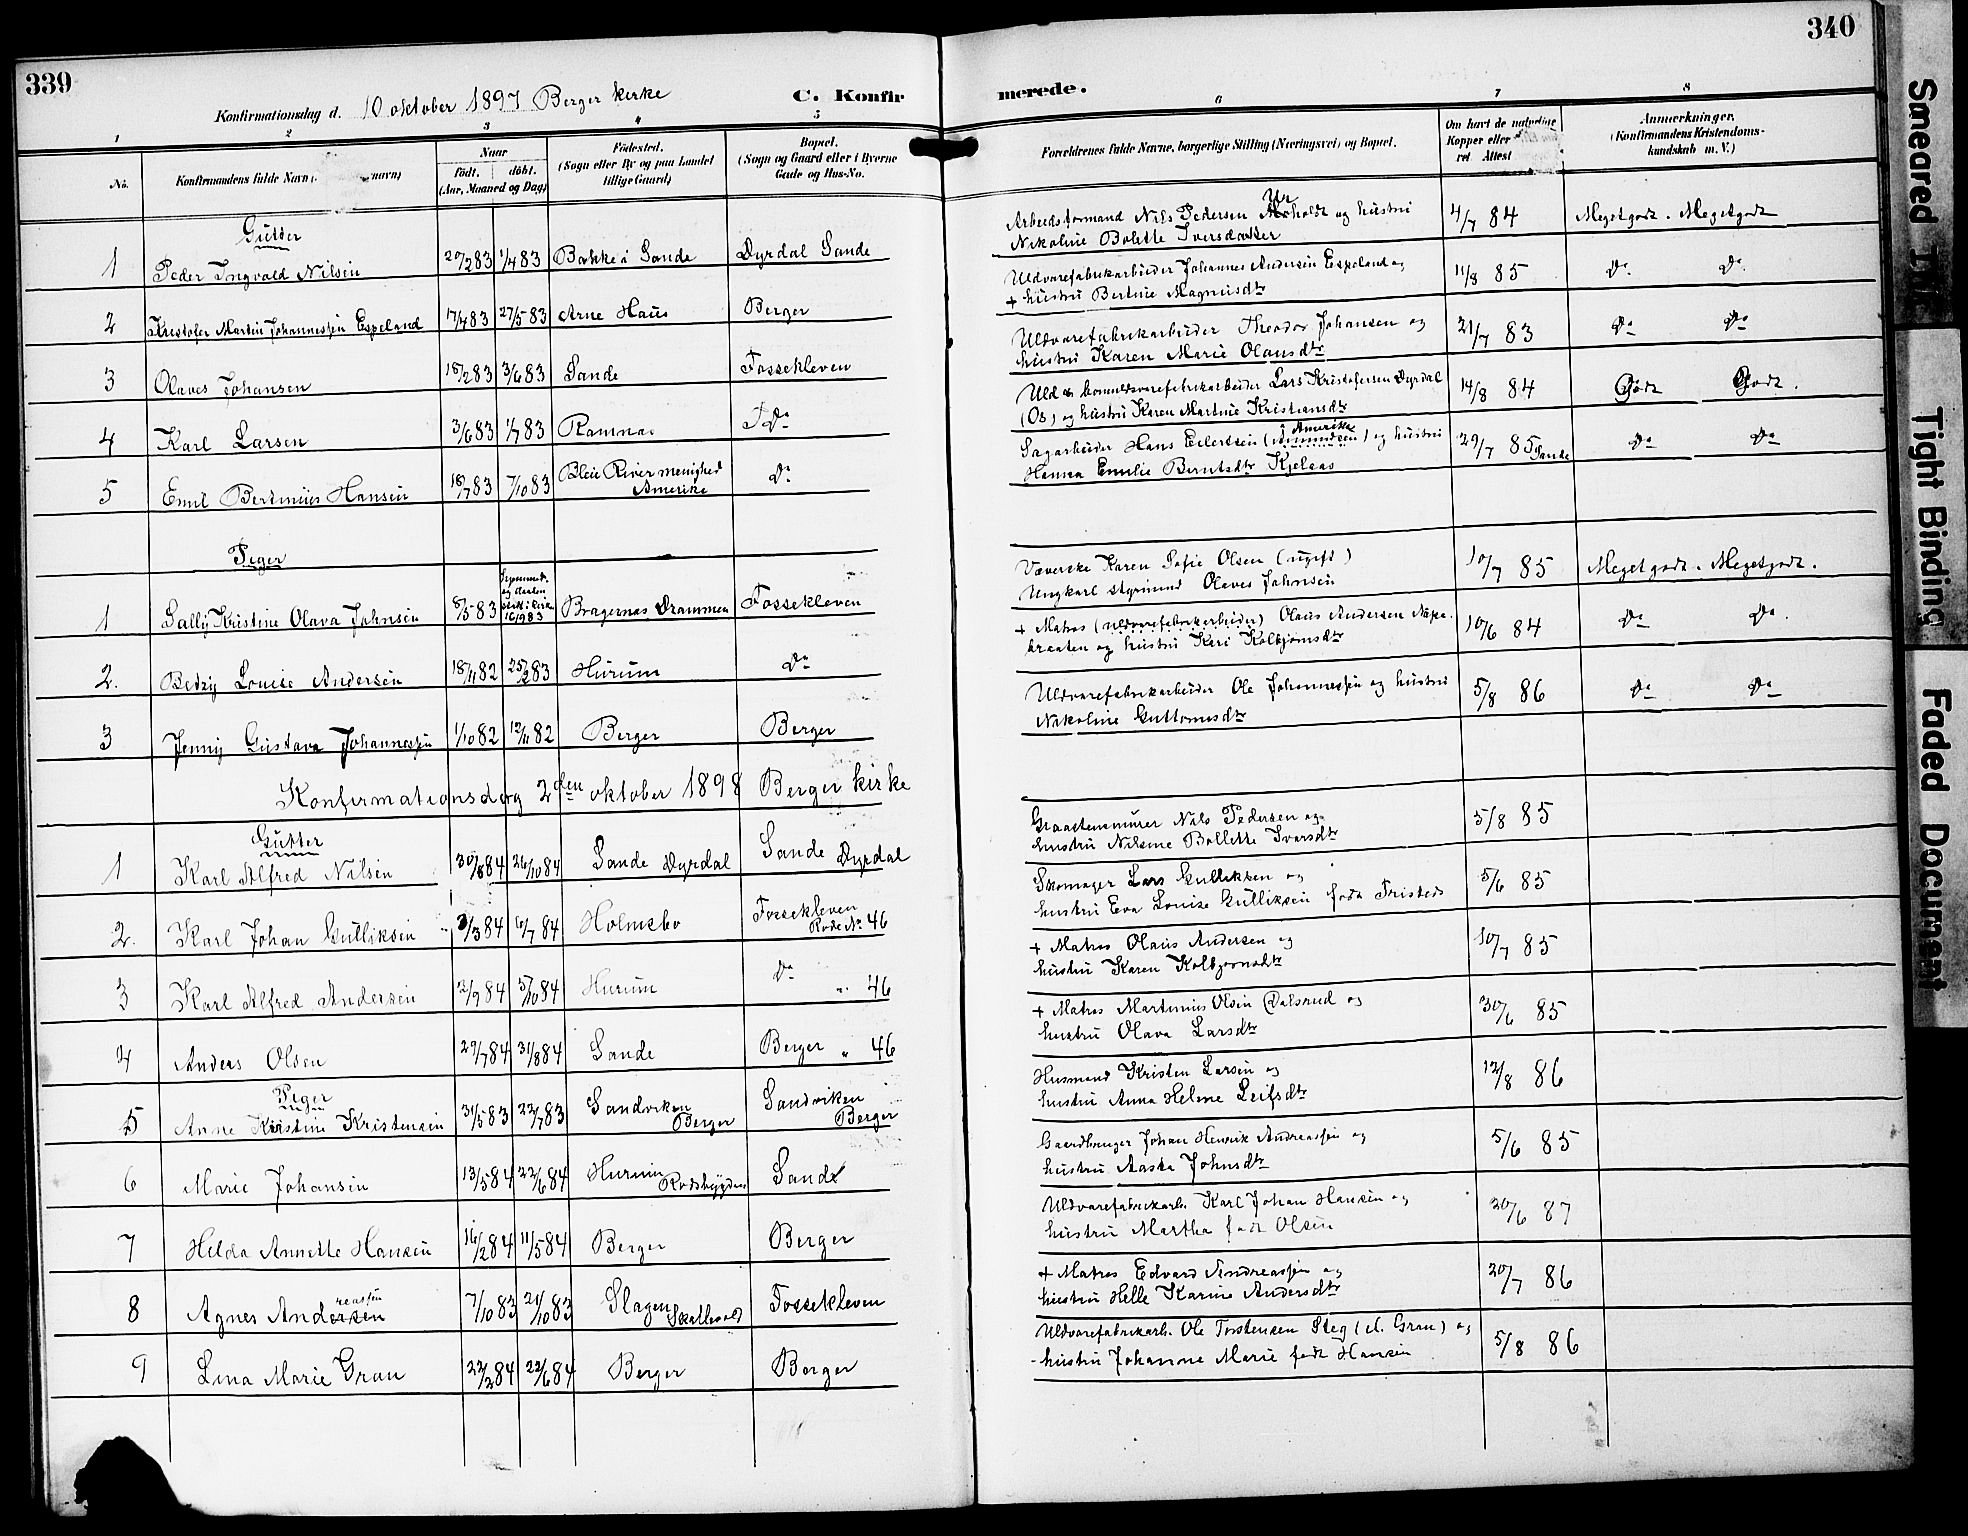 339
340
Konfirmationsdag d. 10 oktober 1897 Berger kirke
C. Konfirmerede.
1 2 3 4 5 6 7 8
No.
Konfirmandens fulde Navn
navn)
Naar
født. døbt.
(Aar, Maaned og Dag)
Fødested.
(Sogn eller By og paa Landet
tillige Gaard)
Bopæl.
(Sogn og Gaard eller i Byerne
Gade og Hus-No.
Forældrenes fulde Navne, borgerlige Stilling (Næringsvei) og Bopæl.
Om havt de naturlige
Kopper eller
ret Attest
Anmerkninger.
(Konfirmandens Kristendoms-
kundskab m. V.)
Gutter
1 Peder Ingvald Nilsen 20/2 83 1/4 83 Bakke i Sande Dyrdal Sande
Arbeidsformand Nils Pedersen og hustru
Nikoline Bolette Iversdatter
4/7 84 Megetgodt. Megetgodt
2 Kristofer Martin Johannessen Espeland 17/4 83 27/5 83 Arne Haus Berger
Uldvarefabrikarbeider Johannes Andersen Espeland og
+ hustru Bertine Magnusdtr
11/8 85 Do. Do.
3 Olaves Johansen 18/2 83 3/6 83 Sande Fossekleven
Uldvarefabrikarbeider Theodor Johansen og
hustru Karen Marie Olausdtr
21/7 83 Do Do
4 Karl Larsen 3/6 83 1/7 83 Ramnes Do
Uld & bomuldsvarefabrikarbeider Lars Kristofersen Dyrdal
(Os) og hustru Karen Martine Kristiansdtr
14/8 84 Godt Godt.
5 Emil Bertinius Hansen 18/7 83 7/10 83 Blue River menighed
Amerika Do
Sagarbeider Hans Eilertsen ( i Amerika ) og hustru
Hanna Emilie Berntsdtr Kjelaas
29/7 85 Sande Do Do
Piger
1 Sally Kristine Olava Johnsen 8/5 83
16/9 83 Bragernas Drammen Fossekleven
Væverske Karen Sofie Olsen (ugift)
Ungkarl styrmand Olaves Johnsen
10/7 85 Megetgodt. Megetgodt.
2. Betzy Louise Andersen 18/11 82 25/2 83 Hurum Do
+ Matros (uldvarefabrikarbeider) Olaus Andersen
braaten og hustru Kari Kolbjørnsdtr
10/6 84 Do Do.
3 Jenny Gustava Johannessen 1/10 82 12/11 82 Berger Berger
Uldvarefabrikarbeider Ole Johannessen og hustru
Nikoline Guttormsdtr
5/8 86 Do Do
Konfirmationsdag 2den oktober 1898 Berger kirke
Gutter
1 Karl Alfred Nilsen 30/8 84 26/10 84 Sande Dyrdal Sande Dyrdal
Graastensmurer Nils Pedersen og
hustru Nilsine Bollette Iversdtr
5/8 85
2. Karl Johan Gulliksen 3/3 84 6/7 84 Holmsbo Fossekleven
Rode No 46
Skomager Lars Gulliksen og
hustru Eva Louise Gulliksen født Fristed
5/6 85
3 Karl Alfred Andersen 12/9 84 5/10 84 Hurum Do " 46
+ Matros Olaus Andersen og
hustru Karen Kolbjørnsdtr
10/7 85
4 Anders Olsen 29/7 84 31/8 84 Sande Berger " 46
+ Matros Martinius Olsen Dalsrud og
hustru Olava Larsdtr
30/6 85
Piger
5 Anne Kirstine Kristensen 31/5 83 22/7 83 Sandviken
Berger Sandviken
Berger
Husmand Kristen Larsen og
hustru Anna Helene Leifsdtr
12/8 86
6 Marie Johansen 13/5 84 22/6 84 Hurum
Rødsbygden Sande
Gaardbruger Johan Henrik Andreassen og
hustru Aasta Johnsdtr
5/6 85
7 Hilda Annette Hansen 16/2 84 11/5 84 Berger Berger
Uldvarefabrikarb. Karl Johan Hansen og
hustru Martha født Olsen
20/6 87
8 Agnes Andersen
reassen 7/10 83 21/10 83 Slagen
Skallevold Fossekleven
+ Matros Edvard Andreassen og
hustru Helle Karine Andersdtr
20/7 86
9 Lina Marie Gran 22/2 84 22/6 84 Berger Berger
Uldvarefabrikarb. Ole Torstensen Steg (el. Gran) og
hustru Johanne Marie født Hansen
5/8 86
Smeared Ink
Tight Binding
Faded Document